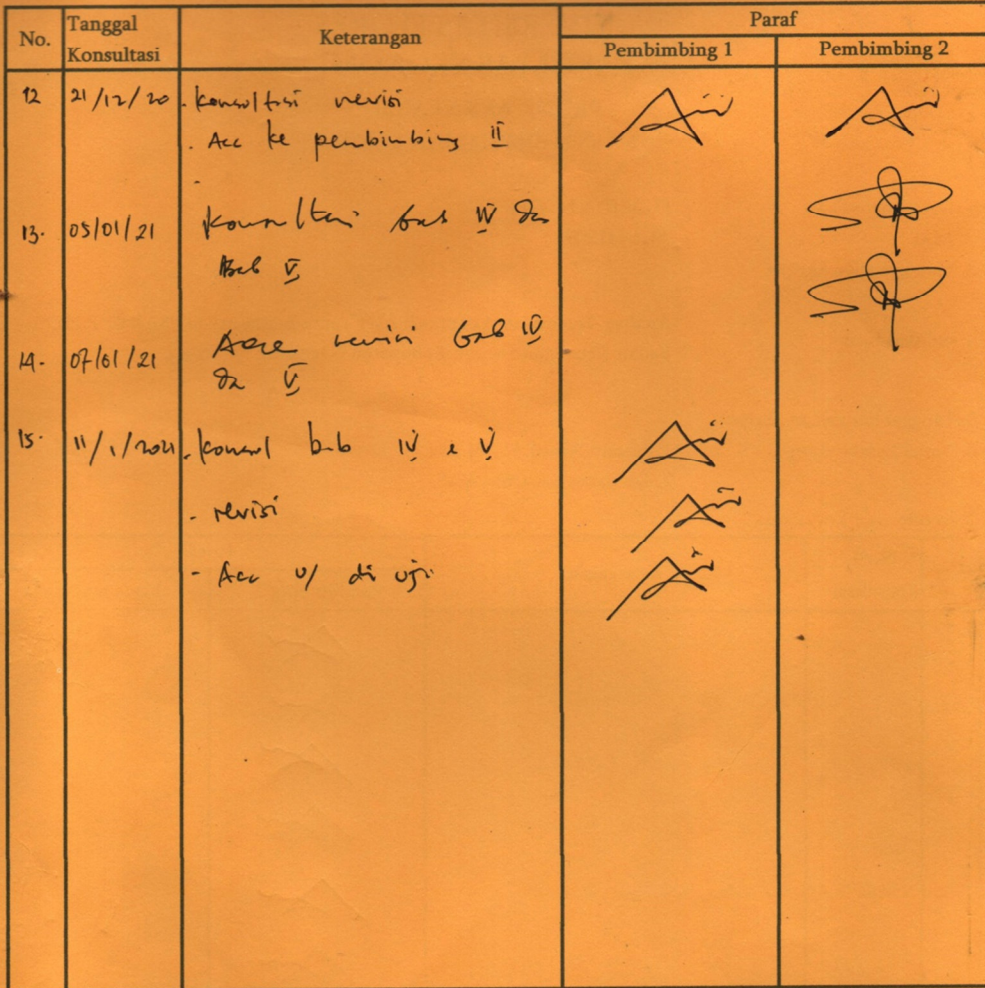 No. Tanggal Konsultasi Keterangan Paraf
Pembimbing 1 Pembimbing 2
12 21/12/20 - konsultasi revisi
. Acc ke pembimbing II
13. 05/01/21 Konsultasi bab IV dan
Bab V
14. 07/01/21 Acc revisi bab IV
da V
15. 11/1/2021 - konsul bab IV & V
- revisi
- Acc u/ di uji